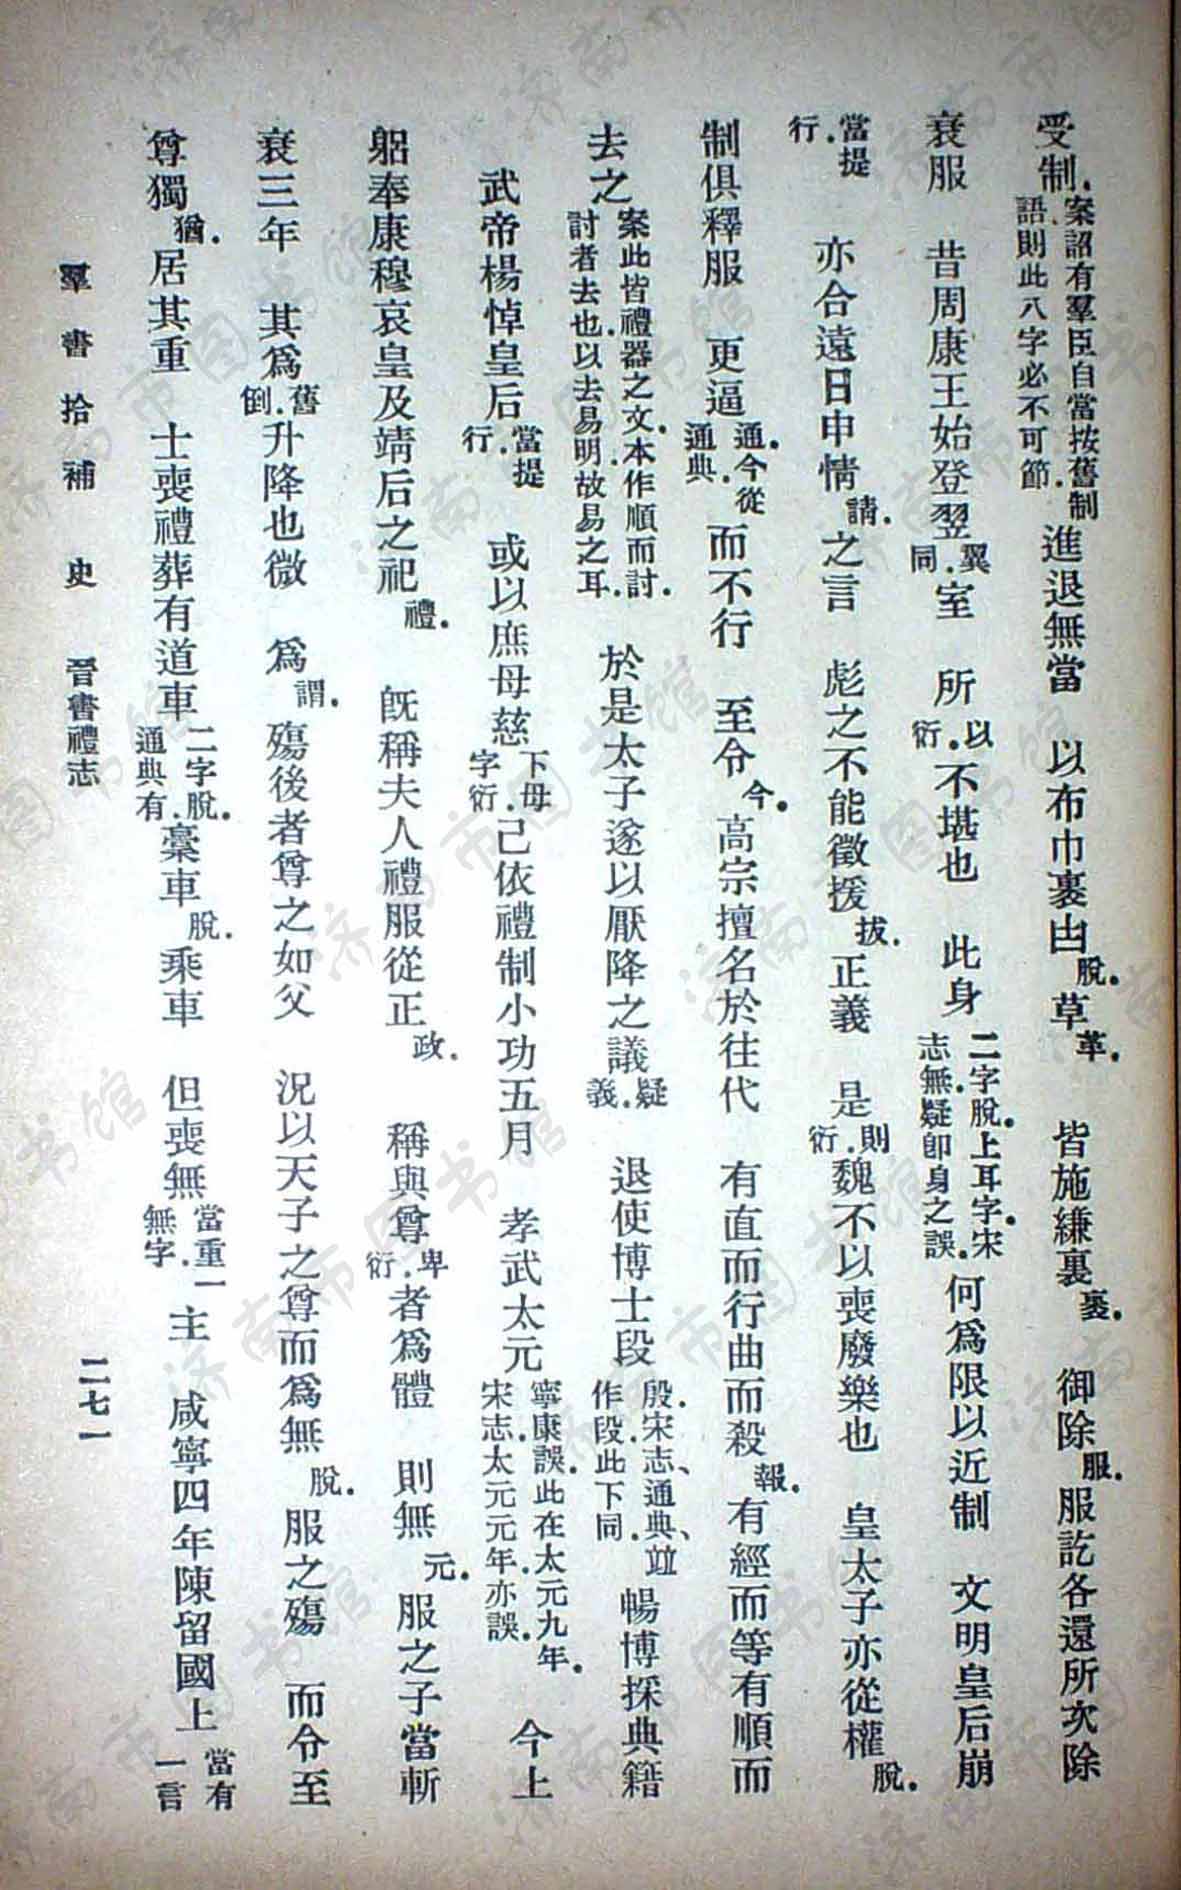 受制.案詔有羣臣自當按舊制語.則此八字必不可節.進退無當　以布巾裹凷脫.草革.　皆施縑裏裹.　御除服.服訖各還所次除
衰服　昔周康王始登翌翼同.室　所以衍.不堪也　此身二字脫.上耳字.宋志無.疑卽身之誤.何爲限以近制　文明皇后崩
當提行.　亦合遠日申情請.之言　彪之不能徵援拔.正義　是則衍.魏不以喪廢樂也　皇太子亦從權脫.
制俱釋服　更逼通.今從通典.而不行　至令今.高宗擅名於往代　有直而行曲而殺報.有經而等有順而
去之案此皆禮器之文.本作順而討.討者去也.以去易明.故易之耳.　於是太子遂以厭降之議疑義.　退使博士段殷.宋志、通典、竝作段.此下同.　暢博採典籍
武帝楊悼皇后當提行.　或以庶母慈下母字衍.己依禮制小功五月　孝武太元寧康誤.此在太元九年.宋志.太元元年.亦誤.　今上
躬奉康穆哀皇及靖后之祀禮.　旣稱夫人禮服從正政.　稱與尊卑衍.者爲體　則無元.　服之子當斬
衰三年　其爲舊倒.升降也微　爲謂.殤後者尊之如父　況以天子之尊而爲無脫.　服之殤　而令至
尊獨猶.居其重　士喪禮葬有道車二字脫.通典有.稾車脫.乘車　但喪無當重一無字.主　咸寧四年陳留國上當有一言
羣書拾補　史　晉書禮志
二七一